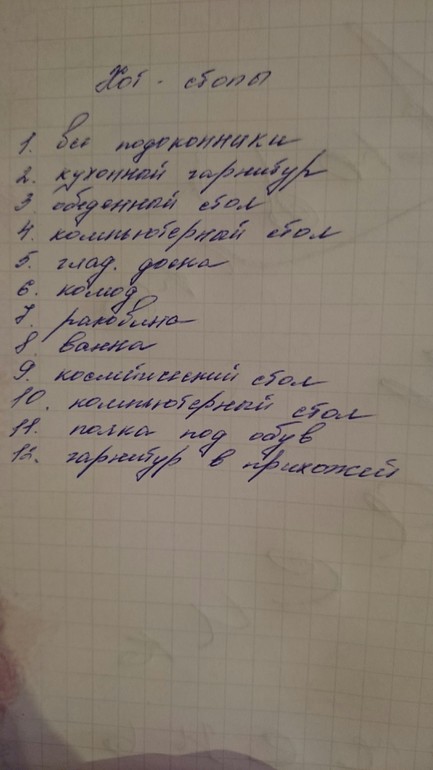 Хот - споты
1. все подоконники
2. кухонный гарнитур
3 обеденный стол
4. компьютерный стол
5. глад. доска
6. комод
7. раковина
8. ванна
9. косметический стол
10. компьютерный стол
11. полка под обув
12. гарнитур в прихожей